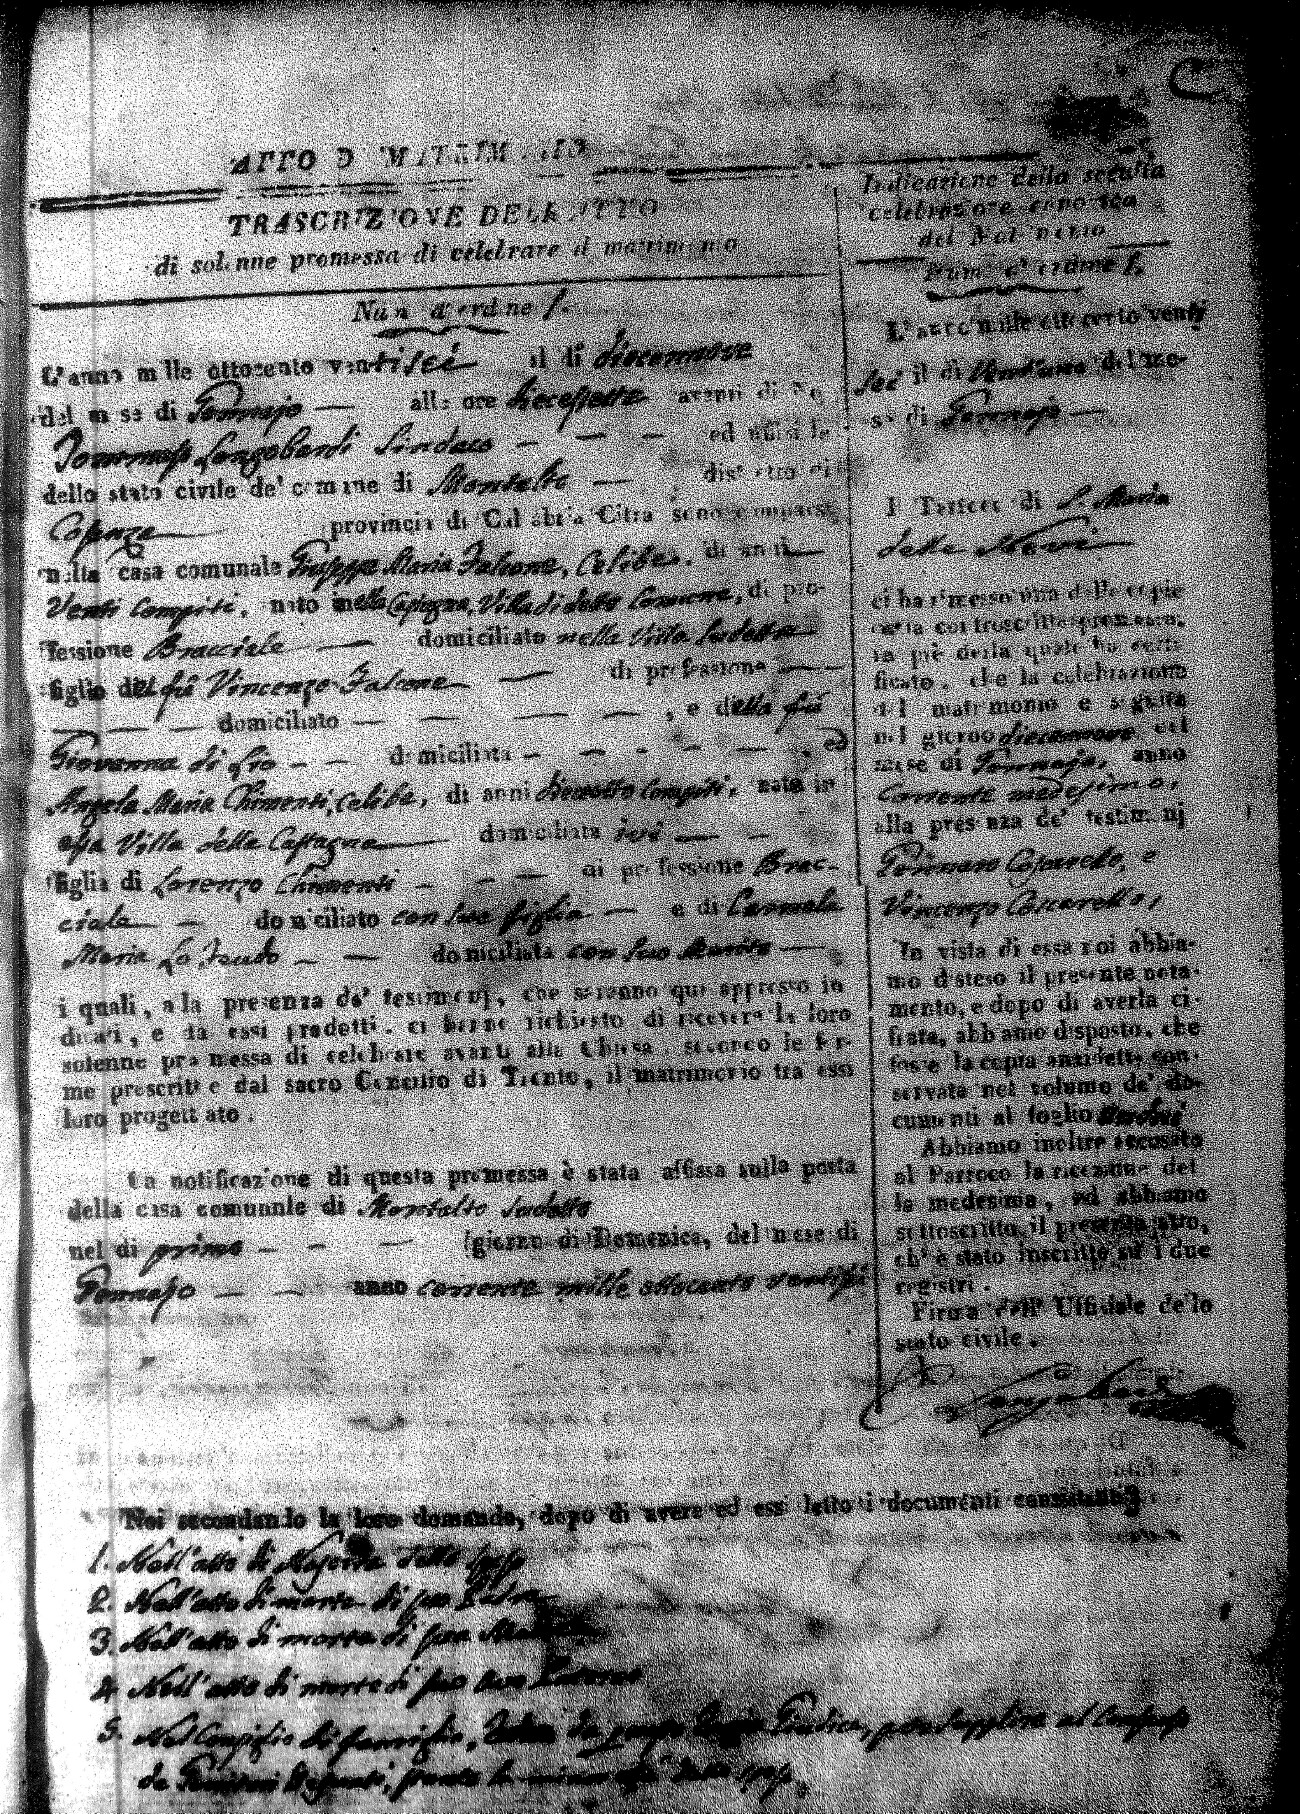 ATTO D MATRIM
TRASCRIZIONE DELL ATTO
di solenne promessa di celebrare il matrimonio
Num d'ordine 1.
L'anno mille ottocento ventisei il dì diecennove
del mese di Gennajo — alle ore diecessette avanti di Noi
Tommaso Longobardi Sindaco — — — ed ufficiale
dello stato civile de' comune di Montalto — distretto di
Cosenza — provincia di Calabria Citra sono comparsi
nella casa comunale Giuseppe Maria Falcone, Celibe, di anni
Venti Compiti, nato nella Castagna, Villa di detto Comune, di pro-
fessione Bracciale — domiciliato nella Villa sudetta
figlio del fù Vincenzo Falcone — di professione —
— — — domiciliato — — — — , e della fù
Giovanna di Lio — — domiciliata — — — — — , ed
Angela Maria Chimenti, Celibe, di anni dieciotto Compiti, nata in
essa Villa della Castagna — domiciliata ivi — —
figlia di Lorenzo Chimenti — — — di professione Brac-
ciale — domiciliato con sua figlia — e di Carmela
Maria Lo Feudo — — domiciliata con suo marito —
i quali, alla presenza de' testimonj, che saranno qui appresso in
dicati, e da essi prodotti, ci hanno richiesto di ricevere la loro
solenne promessa di celebrare avanti alla Chiesa, secondo le for-
me prescritte dal sacro Concilio di Trento, il matrimonio tra essi
loro progettato.
La notificazione di questa promessa è stata affissa sulla porta
della casa comunale di Montalto sudetto
nel dì primo — — — (giorno di Domenica, del mese di
Gennajo — — anno corrente mille ottocento ventisei
Indicazione della seguita
celebrazione canonica
del Matrimonio
Num. d'ordine 1.
L'anno mille ottocento venti
sei il dì del me-
se di Gennajo —
Il Parroco di S. Maria
della Neve
ci ha rimesso una delle copie
della controscritta promessa,
in piè della quale ha certi-
ficato, che la celebrazione
del matrimonio è seguita
nel giorno diecennove del
mese di Gennajo, anno
Corrente medesimo,
alla presenza de' testimonj
Gennaro, e
Vincenzo
In vista di essa noi abbia-
mo disteso il presente nota-
mento, e dopo di averla ci-
frata, abbiamo disposto, che
fosse la copia anzidetta con-
servata nel volume de' do-
cumenti al foglio
Abbiamo inoltre accusato
al Parroco la ricezione del
la medesima, ed abbiamo
sottoscritto il presente atto,
ch' è stato inscritto su' i due
registri.
Firma dell' Uffiziale dello
stato civile.
Longobardi
Noi secondando la loro domanda, dopo di avere ed essi letto i documenti consistenti
1. Nell'atto di Nascita dello sposo
2. Nell'atto di morte di suo Padre
3. Nell'atto di morte di sua Madre
4. Nell'atto di morte di suo Avo Paterno
5. Nel Consiglio di famiglia, Giudice, per supplire al Consenso
de Genitori